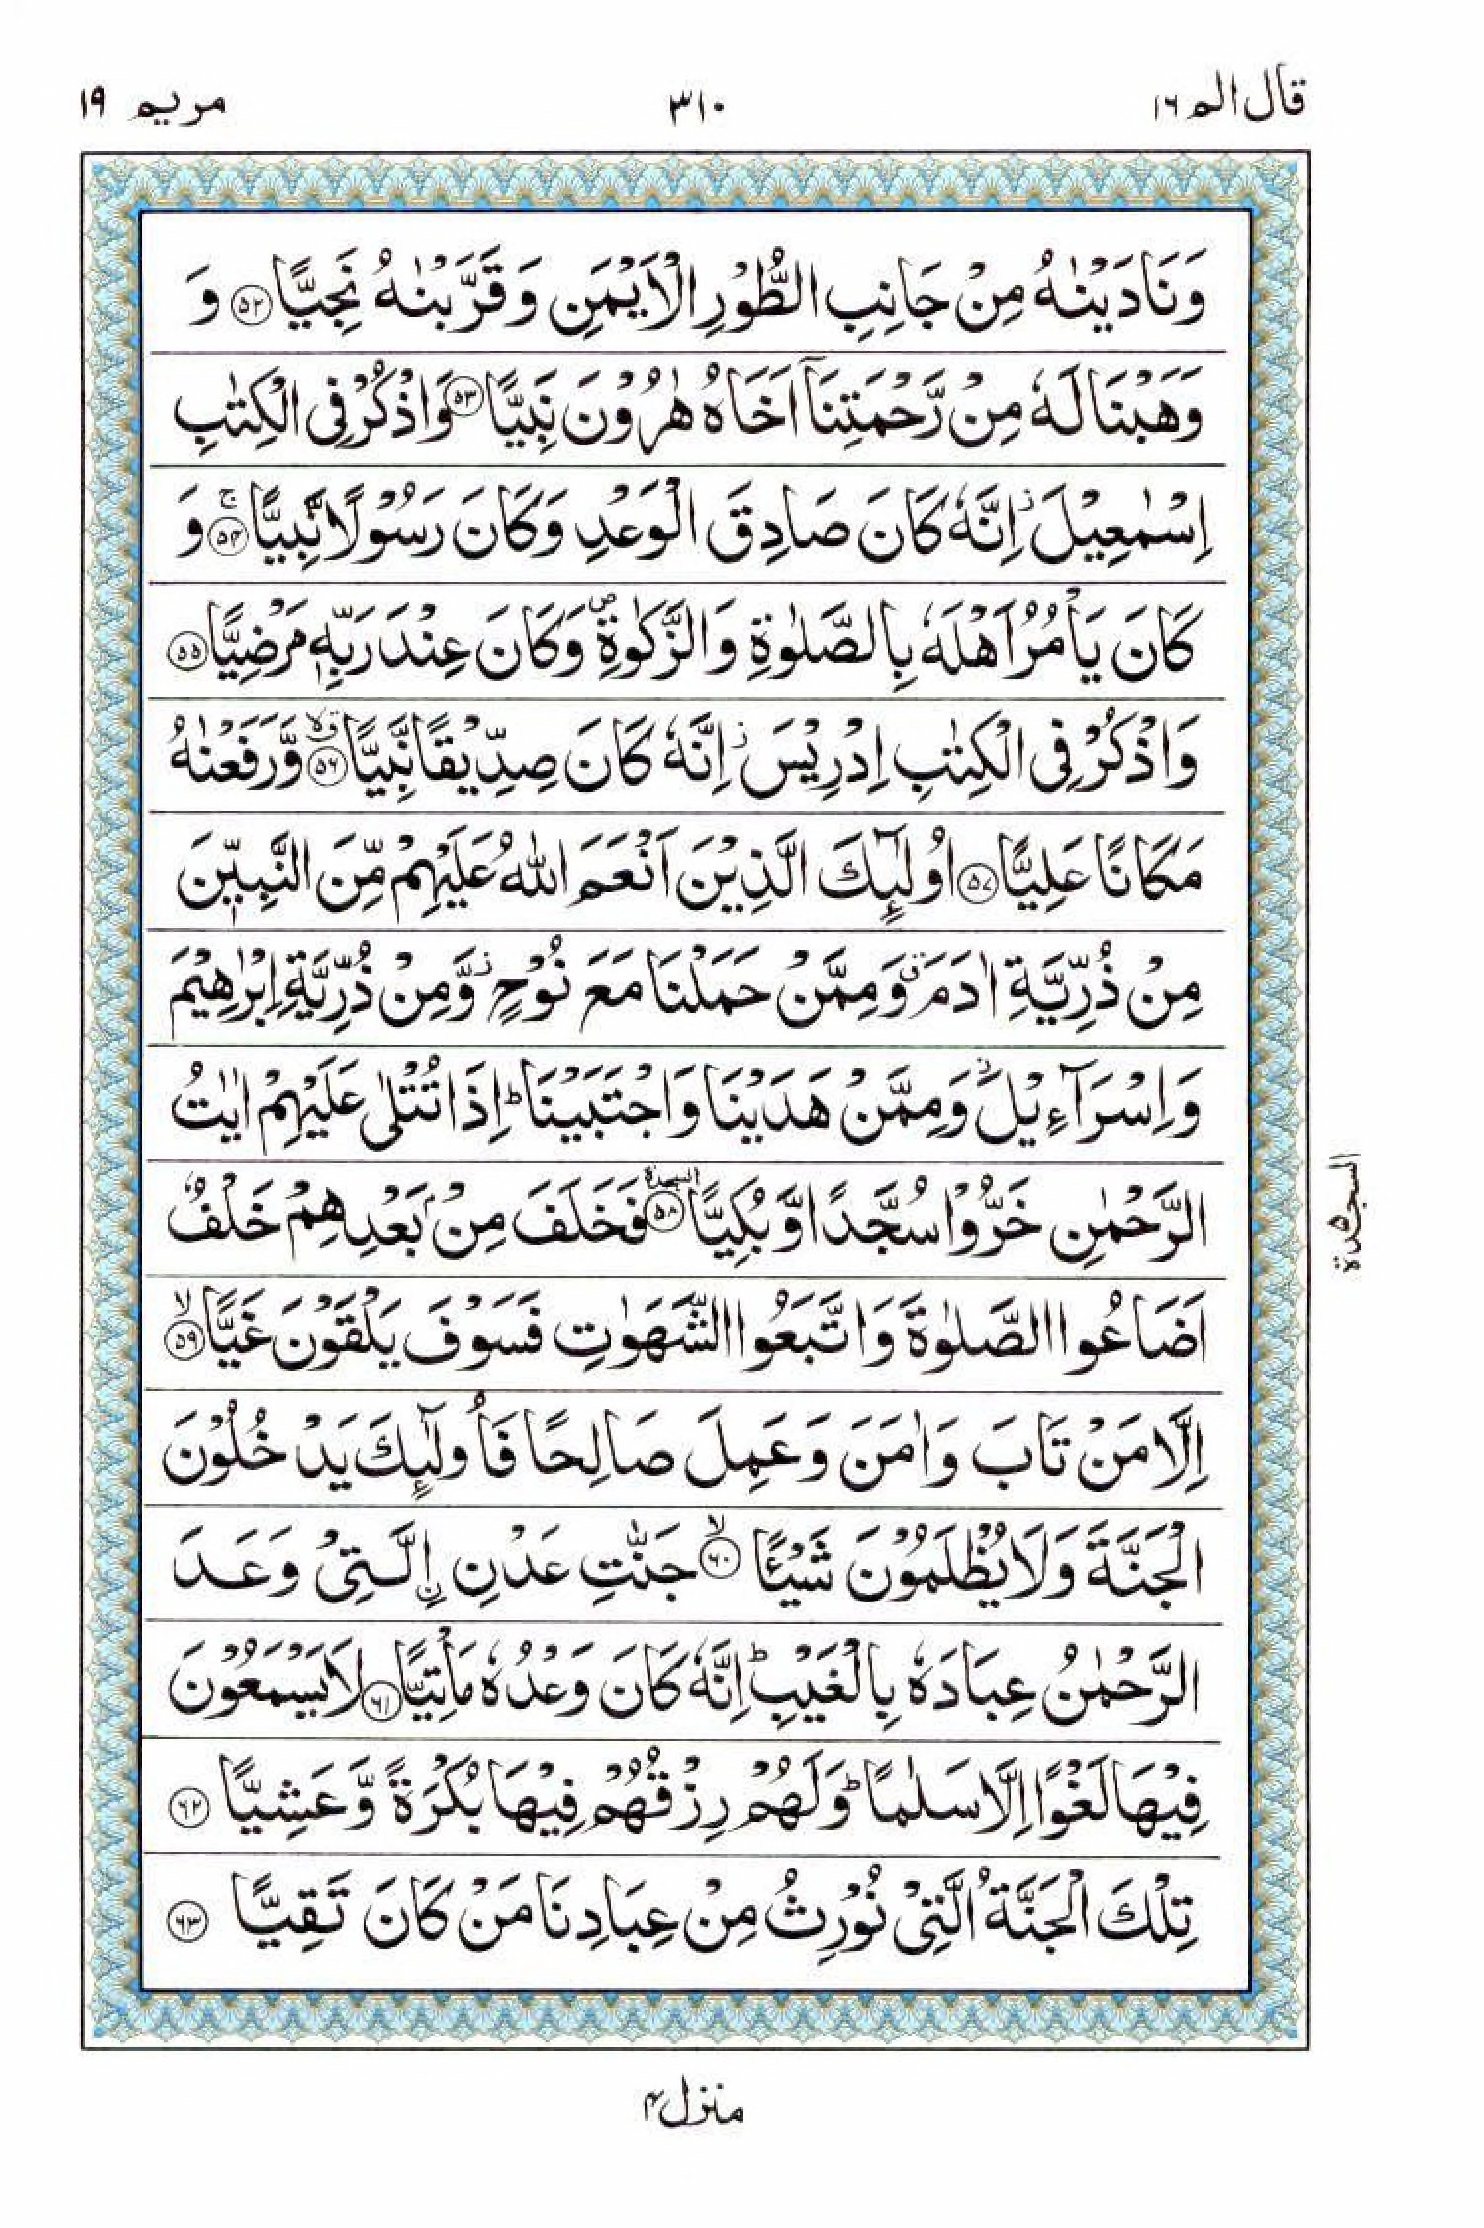 قال الم ١٦ ٣١٠ مريم ١٩
وَنَادَيْنٰهُ مِنْ جَانِبِ الطُّوْرِ الْاَيْمَنِ وَقَرَّبْنٰهُ نَجِيًّا ﴿٥٢﴾ وَ
وَهَبْنَا لَهٗ مِنْ رَّحْمَتِنَاۤ اَخَاهُ هٰرُوْنَ نَبِيًّا ﴿٥٣﴾ وَاذْكُرْ فِى الْكِتٰبِ
اِسْمٰعِيْلَ ؗ اِنَّهٗ كَانَ صَادِقَ الْوَعْدِ وَكَانَ رَسُوْلًا نَّبِيًّا ۚ ﴿٥٤﴾ وَ
كَانَ يَاْمُرُ اَهْلَهٗ بِالصَّلٰوةِ وَالزَّكٰوةِ ۪ وَكَانَ عِنْدَ رَبِّهٖ مَرْضِيًّا ﴿٥٥﴾
وَاذْكُرْ فِى الْكِتٰبِ اِدْرِيْسَ ؗ اِنَّهٗ كَانَ صِدِّيْقًا نَّبِيًّا ۗۙ ﴿٥٦﴾ وَّرَفَعْنٰهُ
مَكَانًا عَلِيًّا ﴿٥٧﴾ اُولٰٓئِكَ الَّذِيْنَ اَنْعَمَ اللّٰهُ عَلَيْهِمْ مِّنَ النَّبِيّٖنَ
مِنْ ذُرِّيَّةِ اٰدَمَ ۗ وَمِمَّنْ حَمَلْنَا مَعَ نُوْحٍ ؗ وَّمِنْ ذُرِّيَّةِ اِبْرٰهِيْمَ
وَاِسْرَآءِيْلَ ؗ وَمِمَّنْ هَدَيْنَا وَاجْتَبَيْنَا ؕ اِذَا تُتْلٰى عَلَيْهِمْ اٰيٰتُ
الرَّحْمٰنِ خَرُّوْا سُجَّدًا وَّبُكِيًّا السجدة ﴿٥٨﴾ فَخَلَفَ مِنْۢ بَعْدِهِمْ خَلْفٌ
اَضَاعُوا الصَّلٰوةَ وَاتَّبَعُوا الشَّهَوٰتِ فَسَوْفَ يَلْقَوْنَ غَيًّا ۙ ﴿٥٩﴾
اِلَّا مَنْ تَابَ وَاٰمَنَ وَعَمِلَ صَالِحًا فَاُولٰٓئِكَ يَدْخُلُوْنَ
الْجَنَّةَ وَلَا يُظْلَمُوْنَ شَيْئًا ۙ ﴿٦٠﴾ جَنّٰتِ عَدْنِ ۨالَّتِىْ وَعَدَ
الرَّحْمٰنُ عِبَادَهٗ بِالْغَيْبِ ؕ اِنَّهٗ كَانَ وَعْدُهٗ مَاْتِيًّا ﴿٦١﴾ لَا يَسْمَعُوْنَ
فِيْهَا لَغْوًا اِلَّا سَلٰمًا ؕ وَلَهُمْ رِزْقُهُمْ فِيْهَا بُكْرَةً وَّعَشِيًّا ﴿٦٢﴾
تِلْكَ الْجَنَّةُ الَّتِىْ نُوْرِثُ مِنْ عِبَادِنَا مَنْ كَانَ تَقِيًّا ﴿٦٣﴾
السجدة ٥
منزل ٤